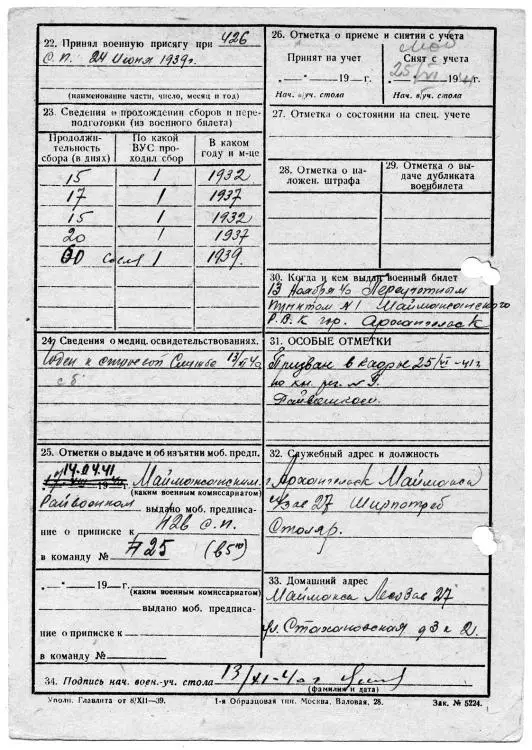 22. Принял военную присягу при 426
с.п. 24 июня 1939 г.
(наименование части, число, месяц и год)
23. Сведения о прохождении сборов и пере-
подготовки (из военного билета)
Продолжи-
тельность
сбора (в днях)
По какой
ВУС про-
ходил сбор
В каком
году и м-це
15 1 1932
17 1 1937
15 1 1932
20 1 1937
60 1 1939.
24. Сведения о медиц. освидетельствованиях.
Годен к строевой службе 13/XI 40
25. Отметки о выдаче и об изъятии моб. предп.
14.04.41 Маймаксанским
(каким военным комиссариатом)
Райвоенком выдано моб. предписа-
ние о приписке к 426 с.п.
в команду № 725
„ “ 19 — г.
(каким военным комиссариатом)
выдано моб. предписа-
ние о приписке к
в команду №
26. Отметка о приеме и снятии с учета
Принят на учет
„ “ 19 — г.
Нач. в/уч. стола
Моб
Снят с учета
25/VI 1941 г.
Нач. в/уч. стола
27. Отметка о состоянии на спец. учете
28. Отметка о на-
ложен. штрафа
29. Отметка о вы-
даче дубликата
военбилета
30. Когда и кем выдан военный билет
13 Ноября 40 Переучетным
пунктом №1 Маймаксанского
Р.В.К гор. Архангельск
31. ОСОБЫЕ ОТМЕТКИ
Призван в кадры 25/VI-41 г.
Райвоенкомат
32. Служебный адрес и должность
г. Архангельск Маймакса
27 Ширпотреб
Столяр.
33. Домашний адрес
Маймакса Лесозав 27
ул. Стахановская д 3 к 2.
34. Подпись нач. воен.-уч. стола 13/XI-40 г
(фамилия и дата)
Уполн. Главлита от 8/XII—39.
1-я Образцовая тип. Москва, Валовая, 28.
Зак. № 5224.